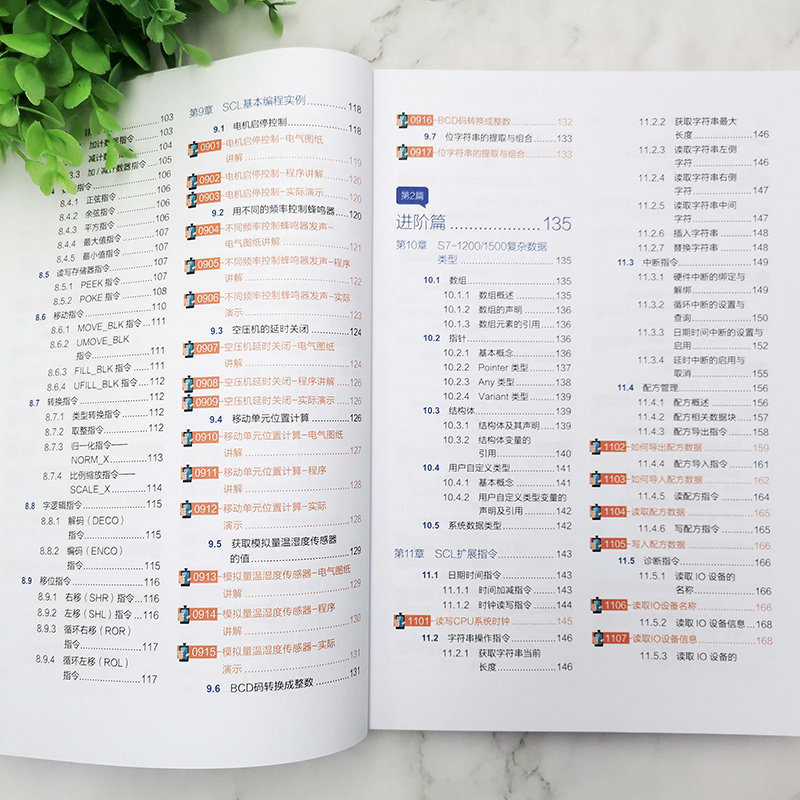 103
103
加计数器指令 104
减计数器指令 104
8.3 加/减计数器指令 105
指令 106
8.4.1 正弦指令 106
8.4.2 余弦指令 106
8.4.3 平方指令 106
8.4.4 最大值指令 107
8.4.5 最小值指令 107
8.5 读写存储器指令 107
8.5.1 PEEK指令 107
8.5.2 POKE指令 108
8.6 移动指令 110
8.6.1 MOVE_BLK指令 111
8.6.2 UMOVE_BLK
指令 111
8.6.3 FILL_BLK指令 111
8.6.4 UFILL_BLK指令 112
8.7 转换指令 112
8.7.1 类型转换指令 112
8.7.2 取整指令 112
8.7.3 归一化指令——
NORM_X 113
8.7.4 比例缩放指令——
SCALE_X 114
8.8 字逻辑指令 115
8.8.1 解码(DECO)
指令 115
8.8.2 编码(ENCO)
指令 115
8.9 移位指令 116
8.9.1 右移(SHR)指令 116
8.9.2 左移(SHL)指令 116
8.9.3 循环右移(ROR)
指令 117
8.9.4 循环左移(ROL)
指令 117
第9章 SCL基本编程实例 118
9.1 电机启停控制 118
0901 电机启停控制-电气图纸
讲解 119
0902 电机启停控制-程序讲解 120
0903 电机启停控制-实际演示 120
9.2 用不同的频率控制蜂鸣器 120
0904 不同频率控制蜂鸣器发声-
电气图纸讲解 121
0905 不同频率控制蜂鸣器发声-程序
讲解 122
0906 不同频率控制蜂鸣器发声-实际
演示 123
9.3 空压机的延时关闭 124
0907 空压机延时关闭-电气图纸
讲解 124
0908 空压机延时关闭-程序讲解 126
0909 空压机延时关闭-实际演示 126
9.4 移动单元位置计算 126
0910 移动单元位置计算-电气图纸
讲解 127
0911 移动单元位置计算-程序
讲解 128
0912 移动单元位置计算-实际
演示 128
9.5 获取模拟量温湿度传感器
的值 129
0913 模拟量温湿度传感器-电气图纸
讲解 129
0914 模拟量温湿度传感器-程序
讲解 130
0915 模拟量温湿度传感器-实际
演示 131
9.6 BCD码转换成整数 131
0916 BCD码转换成整数 132
9.7 位字符串的提取与组合 133
0917 位字符串的提取与组合 133
第2篇
进阶篇 135
第10章 S7-1200/1500复杂数据
类型 135
10.1 数组 135
10.1.1 数组概述 135
10.1.2 数组的声明 136
10.1.3 数组元素的引用 136
10.2 指针 136
10.2.1 基本概念 136
10.2.2 Pointer 类型 137
10.2.3 Any 类型 138
10.2.4 Variant 类型 139
10.3 结构体 139
10.3.1 结构体及其声明 139
10.3.2 结构体变量的
引用 140
10.4 用户自定义类型 141
10.4.1 基本概念 141
10.4.2 用户自定义类型变量的
声明及引用 142
10.5 系统数据类型 142
第11章 SCL扩展指令 143
11.1 日期时间指令 143
11.1.1 时间加减指令 143
11.1.2 时钟读写指令 144
1101 读写CPU系统时钟 145
11.2 字符串操作指令 146
11.2.1 获取字符串当前
长度 146
11.2.2 获取字符串最大
长度 146
11.2.3 获取字符串左侧
字符 146
11.2.4 获取字符串右侧
字符 147
11.2.5 获取字符串中间
字符 147
11.2.6 插入字符串 148
11.2.7 替换字符串 148
11.3 中断指令 149
11.3.1 硬件中断的绑定与
解绑 149
11.3.2 循环中断的设置与
查询 150
11.3.3 日期时间中断的设置与
启用 152
11.3.4 延时中断的启用与
取消 155
11.4 配方管理 156
11.4.1 配方概述 156
11.4.2 配方相关数据块 157
11.4.3 配方导出指令 158
1102 如何导出配方数据 159
11.4.4 配方导入指令 161
1103 如何导入配方数据 162
11.4.5 读配方指令 164
1104 读取配方数据 165
11.4.6 写配方指令 165
1105 写入配方数据 166
11.5 诊断指令 166
11.5.1 读取 IO 设备的
名称 166
1106 读取IO设备名称 166
11.5.2 读取 IO 设备信息 168
1107 读取IO设备信息 168
11.5.3 读取 IO 设备的